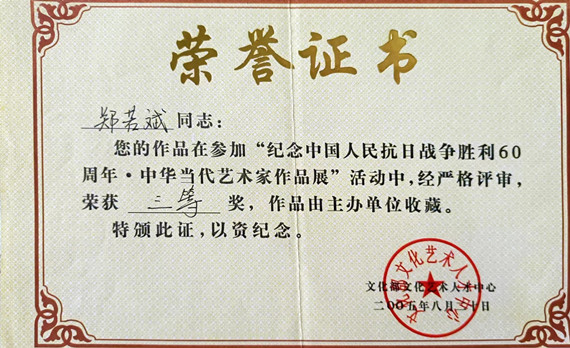 荣誉证书
郑若斌同志：
您的作品在参加“纪念中国人民抗日战争胜利60
周年·中华当代艺术家作品展”活动中，经严格评审，
荣获 三等 奖，作品由主办单位收藏。
特颁此证，以资纪念。
文化部文化艺术人才中心
二〇〇五年八月二十日
文化部文化艺术人才中心